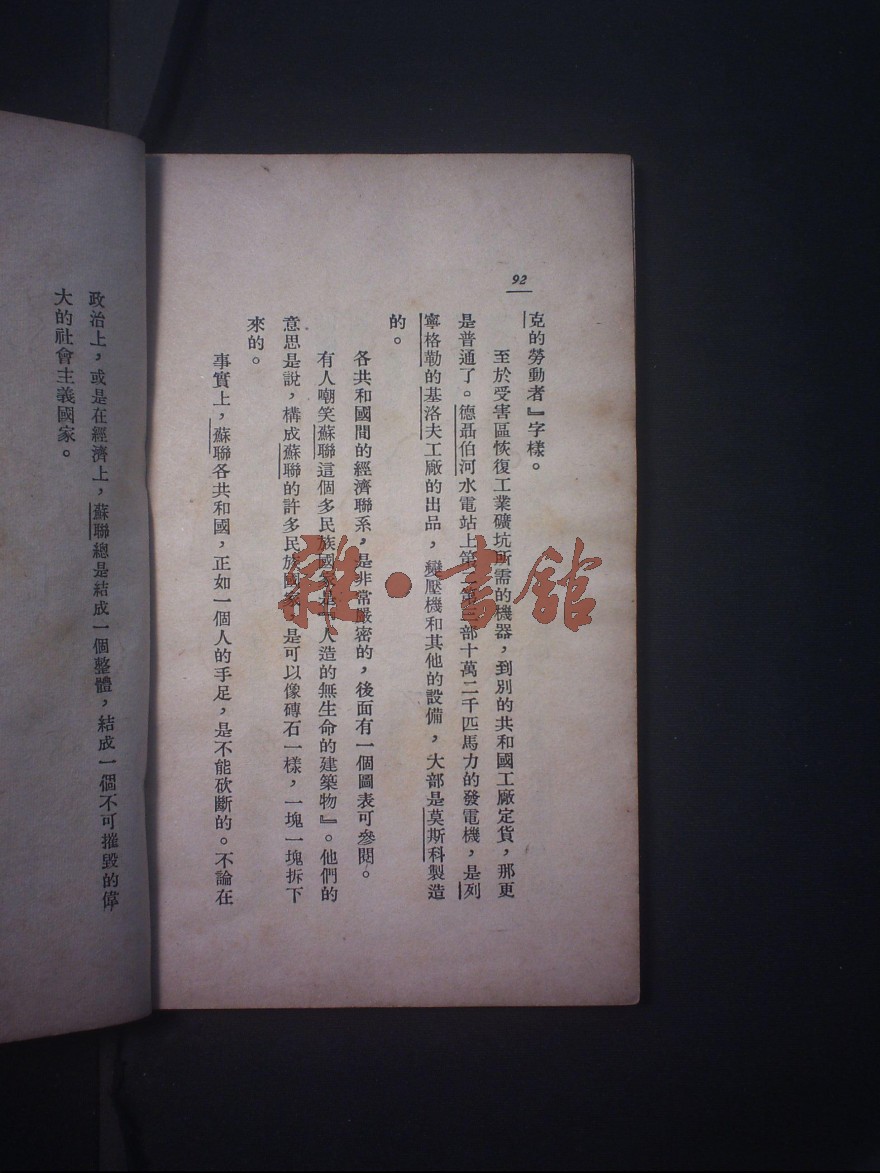 92
克的勞動者』字樣。
至於受害區恢復工業礦坑所需的機器，到別的共和國工廠定貨，那更
是普通了。德聶伯河水電站上第二第三部十萬二千匹馬力的發電機，是列
寧格勒的基洛夫工廠的出品，變壓機和其他的設備，大部是莫斯科製造
的。
各共和國間的經濟聯系，是非常嚴密的，後面有一個圖表可參閱。
有人嘲笑蘇聯這個多民族國家是『人造的無生命的建築物』。他們的
意思是說，構成蘇聯的許多民族國家，是可以像磚石一樣，一塊一塊拆下
來的。
事實上，蘇聯各共和國，正如一個人的手足，是不能砍斷的。不論在
政治上，或是在經濟上，蘇聯總是結成一個整體，結成一個不可摧毀的偉
大的社會主義國家。
雜·書館